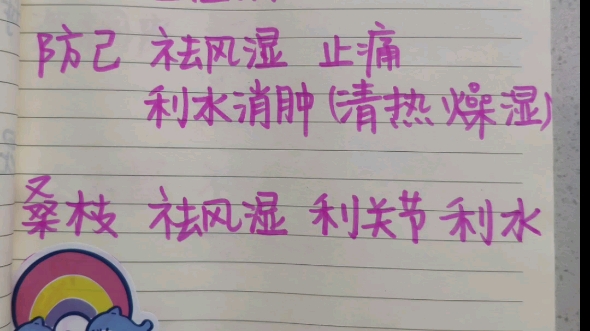 防己 祛风湿 止痛
利水消肿(清热燥湿)
桑枝 祛风湿 利关节 利水